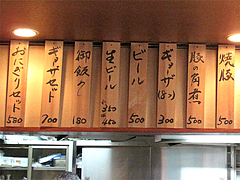 焼豚
500
豚の角煮
500
ギョーザ
(8つ)
300
ビール
500
生ビール
350
450
御飯
180
ギョーザセット
700
おにぎりセット
500